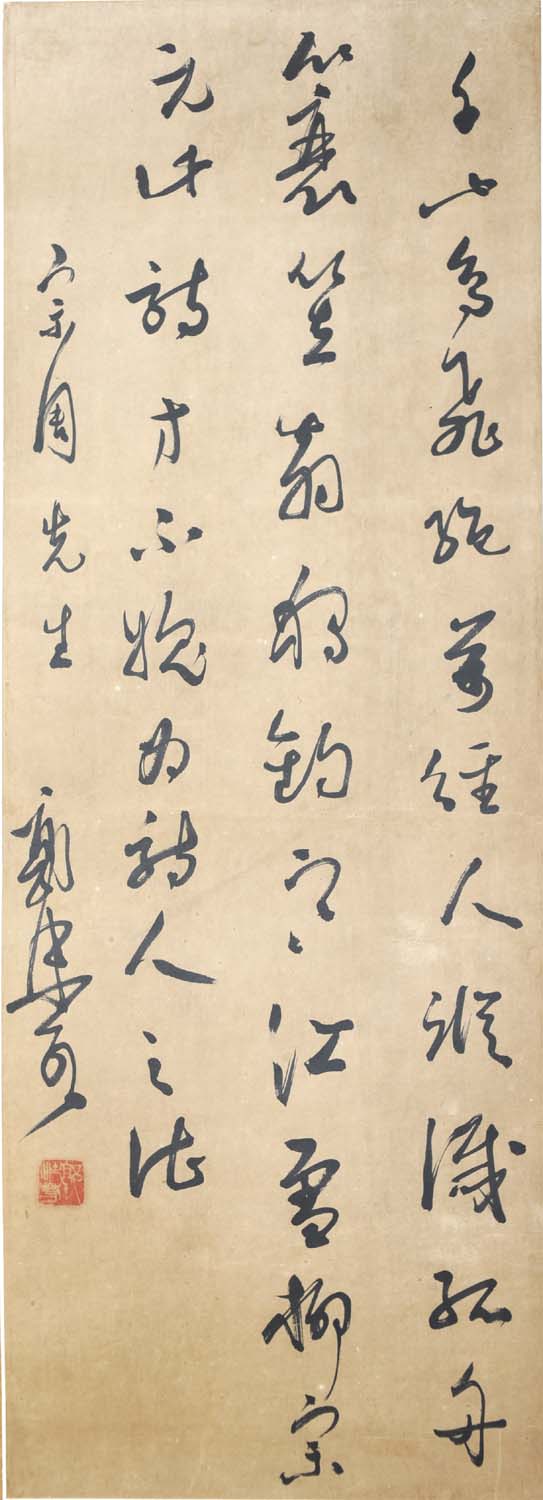 千山鳥飛絕萬徑人蹤滅孤舟
簑笠翁獨釣寒江雪柳宗
元此詩才不愧為詩人之
宗周先生 郭沫若